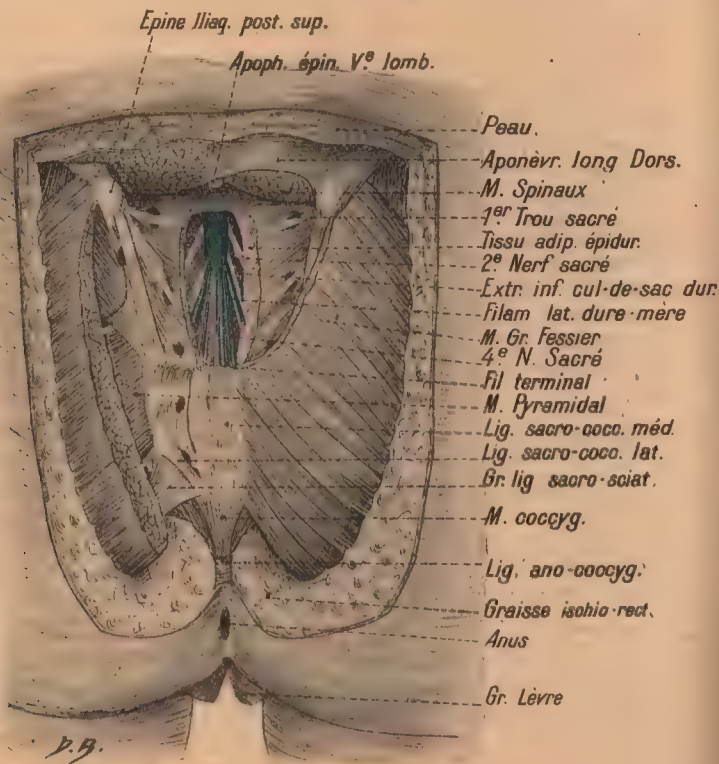 Epine Iliaq. post. sup.
Apoph. épin. V.e lomb.
Peau.
Aponèvr. long Dors.
M. Spinaux
1.er Trou sacré
Tissu adip. épidur.
2.e Nerf sacré
Extr. inf. cul-de-sac dur.
Filam lat. dure-mère
M. Gr. Fessier
4.e N. Sacré
Fil terminal
M. Pyramidal
Lig. sacro-cocc. méd.
Lig. sacro-cocc. lat.
Gr. lig sacro-sciat.
M. coccyg.
Lig. ano-coccyg.
Graisse ischio-rect.
Anus
Gr. Lèvre
D.B.